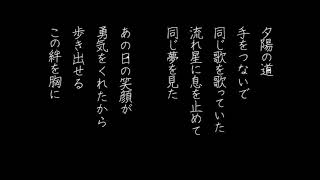 夕陽の道
手をつないで
同じ歌を歌っていた
流れ星に息を止めて
同じ夢を見た
あの日の笑顔が
勇気をくれたから
歩き出せる
この絆を胸に